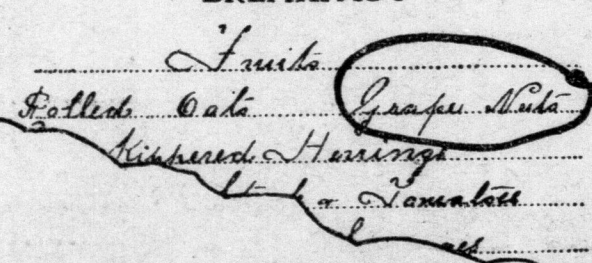 Fruits
Rolled Oats Grape Nuts
Kippered Herrings
Tomatoes